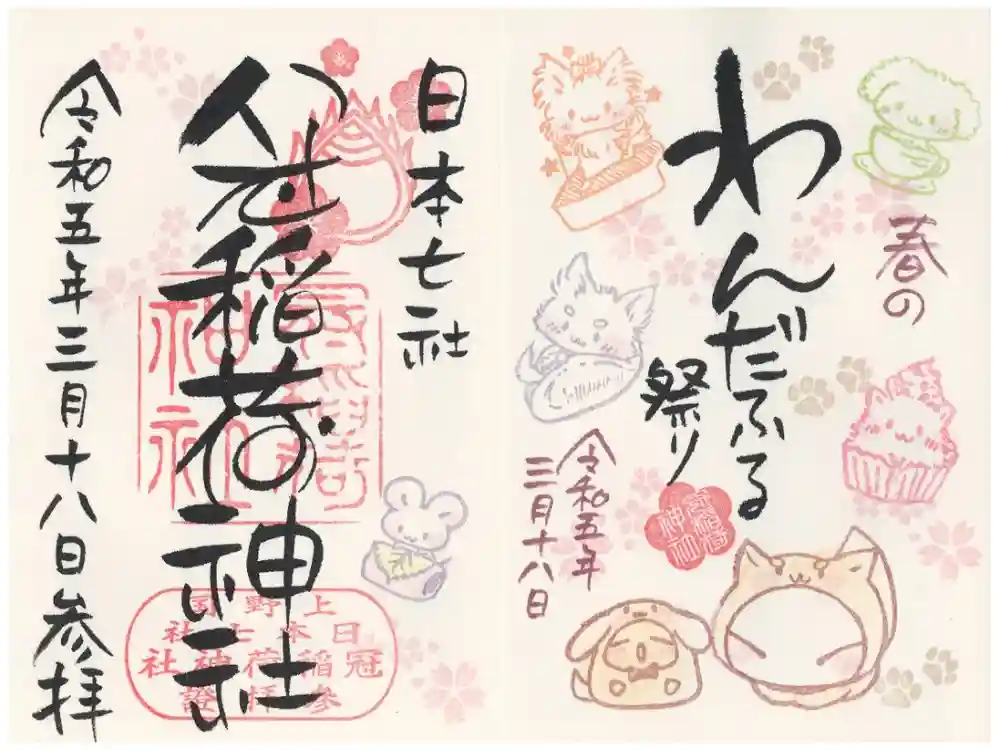 春の
わんだふる
祭り
令和五年
三月十八日
冠稲荷
神社
日本七社
冠稲荷神社
冠稲荷
神社
上野国
日本七社
冠稲荷神社
参拝證
令和五年三月十八日参拝